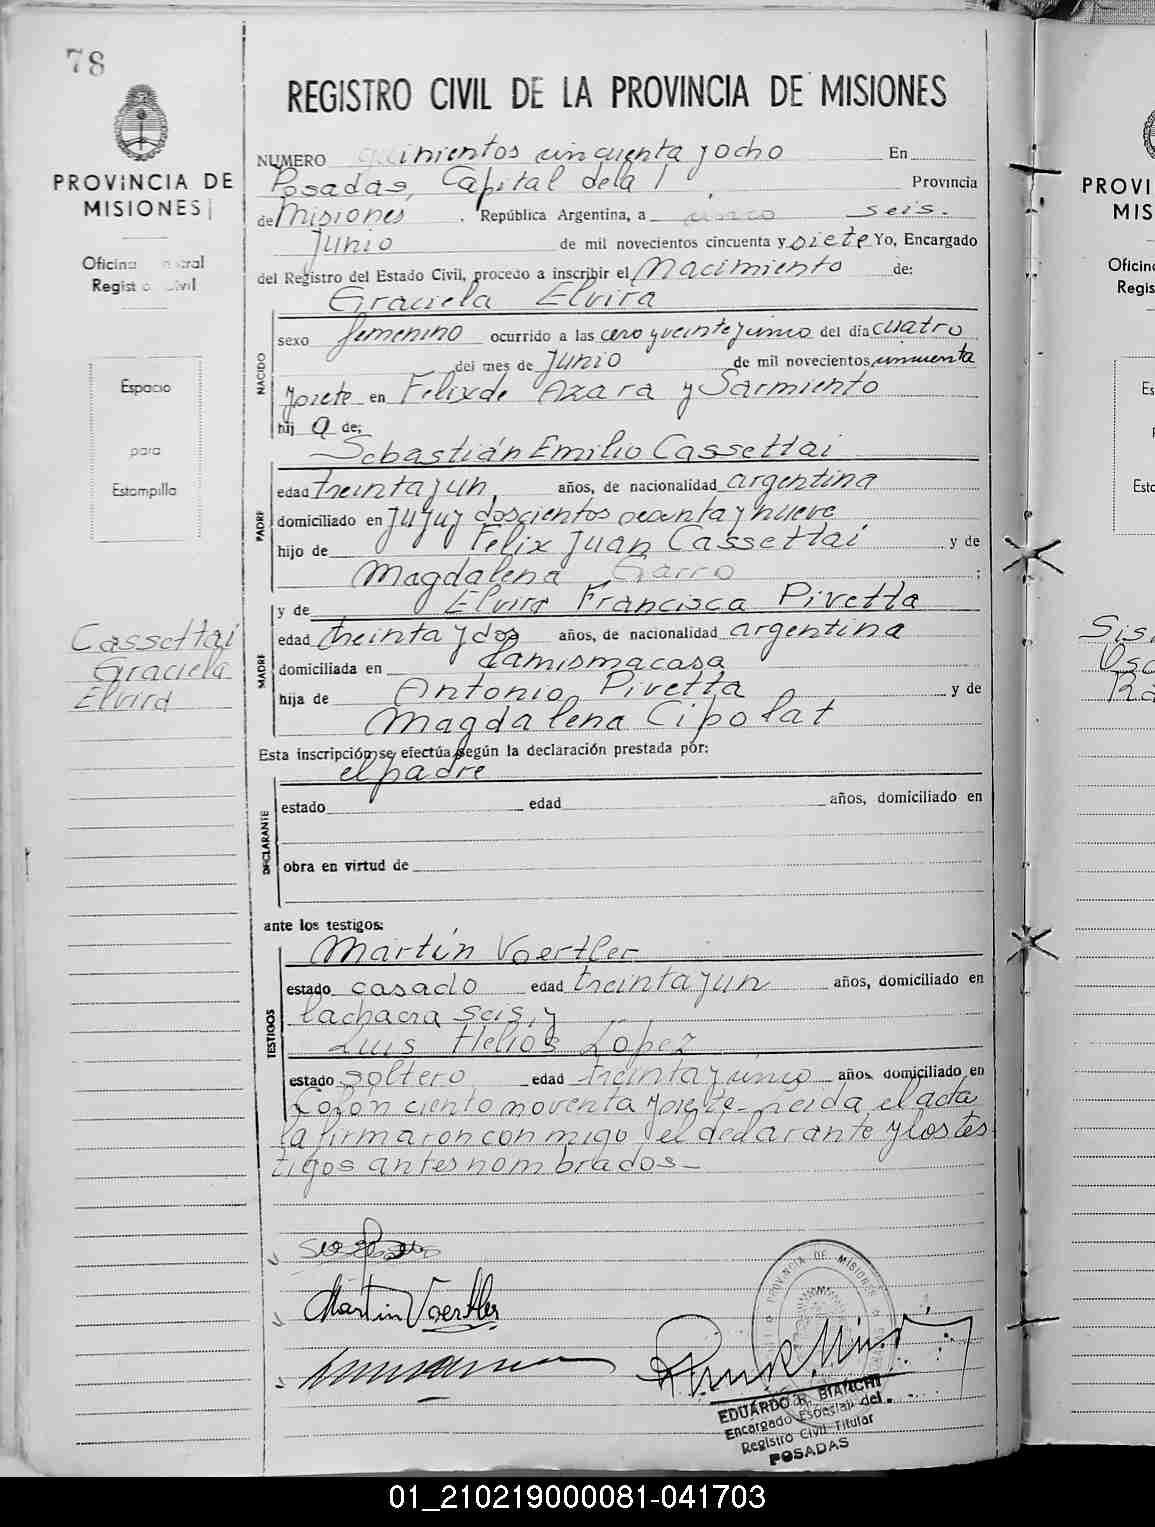 78
REGISTRO CIVIL DE LA PROVINCIA DE MISIONES
PROVINCIA DE
MISIONES
Oficina Central
Registro Civil
Espacio
para
Estampilla
Cassettai
Graciela
Elvira
NUMERO quinientos cincuenta y ocho En
Posadas, Capital de la Provincia
de Misiones, República Argentina, a seis.
Junio de mil novecientos cincuenta y siete Yo, Encargado
del Registro del Estado Civil, procedo a inscribir el Nacimiento de:
Graciela Elvira
NACIDO
sexo femenino ocurrido a las cero y veinte y cinco del día cuatro
del mes de Junio de mil novecientos cincuenta
y siete en Felix de Azara y Sarmiento
hij a de:
Sebastián Emilio Cassettai
PADRE
edad treinta y un, años, de nacionalidad argentina
domiciliado en Jujuy doscientos ocenta y nueve
hijo de Felix Juan Cassettai y de
Magdalena Garro ;
y de Elvira Francisca Pivetta
MADRE
edad treinta y dos años, de nacionalidad argentina
domiciliada en la misma casa
hija de Antonio Pivetta y de
Magdalena Cipolat
Esta inscripción se efectúa según la declaración prestada por:
el padre
DECLARANTE
estado edad años, domiciliado en
obra en virtud de
ante los testigos:
Martín Voertler
TESTIGOS
estado casado edad treinta y un años, domiciliado en
la chacra seis, y
Luis Helios López
estado soltero edad treinta y cinco años domiciliado en
Colón ciento noventa y siete- Leida el acta
la firmaron conmigo el declarante y los tes
tigos antes nombrados-
Martin Voertler
PROVINCIA DE MISIONES
EDUARDO R. BIANCHI
Encargado Especial del
Registro Civil Titular
POSADAS
PROVI
MIS
Oficina
Regis
Es
Esta
Sis
Osc
Ra
01_210219000081-041703